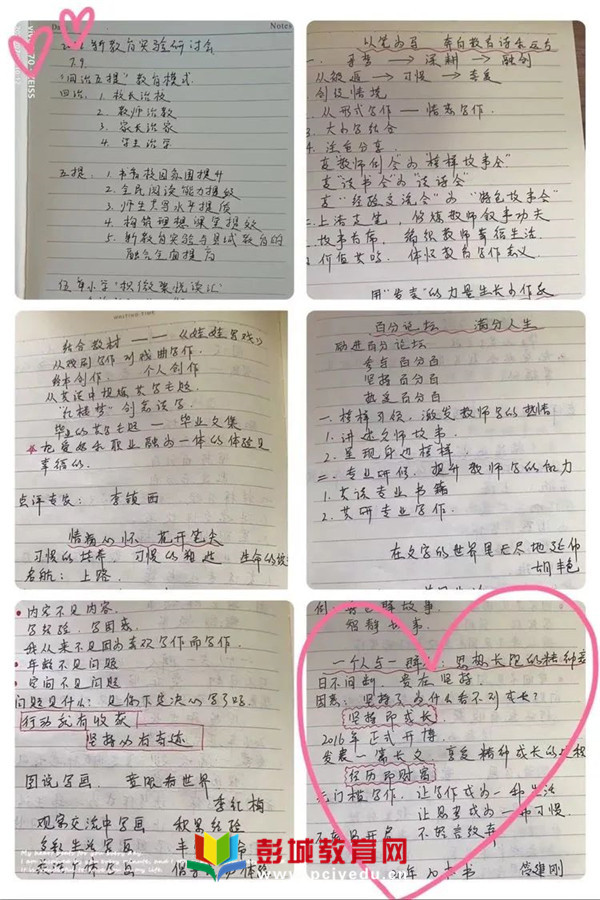 Notes
新教育实验研讨会
7.9
"四治五提"教育模式
四治：1. 校长治校
2. 教师治教
3. 家长治家
4. 学生治学
五提：1. 书香校园氛围提升
2. 全民阅读能力提效
3. 师生共写水平提质
4. 构筑理想课堂提效
5. 新教育实验与县域教育的
融合全面提高
以笔为马 奔向教育诗和远方
一、 寻梦 → 深耕 → 融创
从被逼 → 习惯 → 享受
创设情境
2. 从形式写作 - 情意写作.
3. 大小写结合
4. 注重分享.
变"教师例会"为"榜样故事会"
变"读书会"为"谈话会"
变"经验交流会"为"特色故事会"
故事为序， 编织教师幸福生活.
用"发表"的力量生长为作家
结合教材 —— 《娃娃看戏》
从戏剧写作 到 戏曲写作.
绘本创作. 个人创作
从共读中提炼共写主题
"红楼梦"创意读写.
毕业的共写主题 — 毕业文集
把爱好和职业融为一体的体验是
幸福的.
点评专家： 李镇西
情满心怀 花开笔尖
习惯的培养 习惯的塑造 生命的
启航：上路.
百分论坛 满分人生
助进百分论坛
参与 百分百
坚持 百分百
热爱 百分百
一. 榜样引领，激发教师写的热情
1. 讲述名师故事.
2. 呈现身边榜样.
二. 专业研修，提升教师写的能力
1. 共读专业书籍
2. 共研专业写作.
在文字的世界里无尽地延伸
胡丰色
内容不是内容.
写经验，写困惑.
我从来不是因为喜欢写作而写作.
年龄不是问题
空间不是问题
问题是什么：是你下定决心写了吗.
行动就有收获
坚持必有奇迹
图说写画. 童眼看世界
李红梅
观察交流中写画 积累经验
智静故事.
一个人与一群人：思想长跑的精神
日不间断 贵在坚持.
困惑：坚持了为什么看不到成长？
坚持即成长
2016年正式开博.
发表一篇长文 享受精神成长的
经历即财富
无门槛写作，让写作成为一种生活
让思考成为一种习惯.
彭城教育网
www.pcjyedu.cn